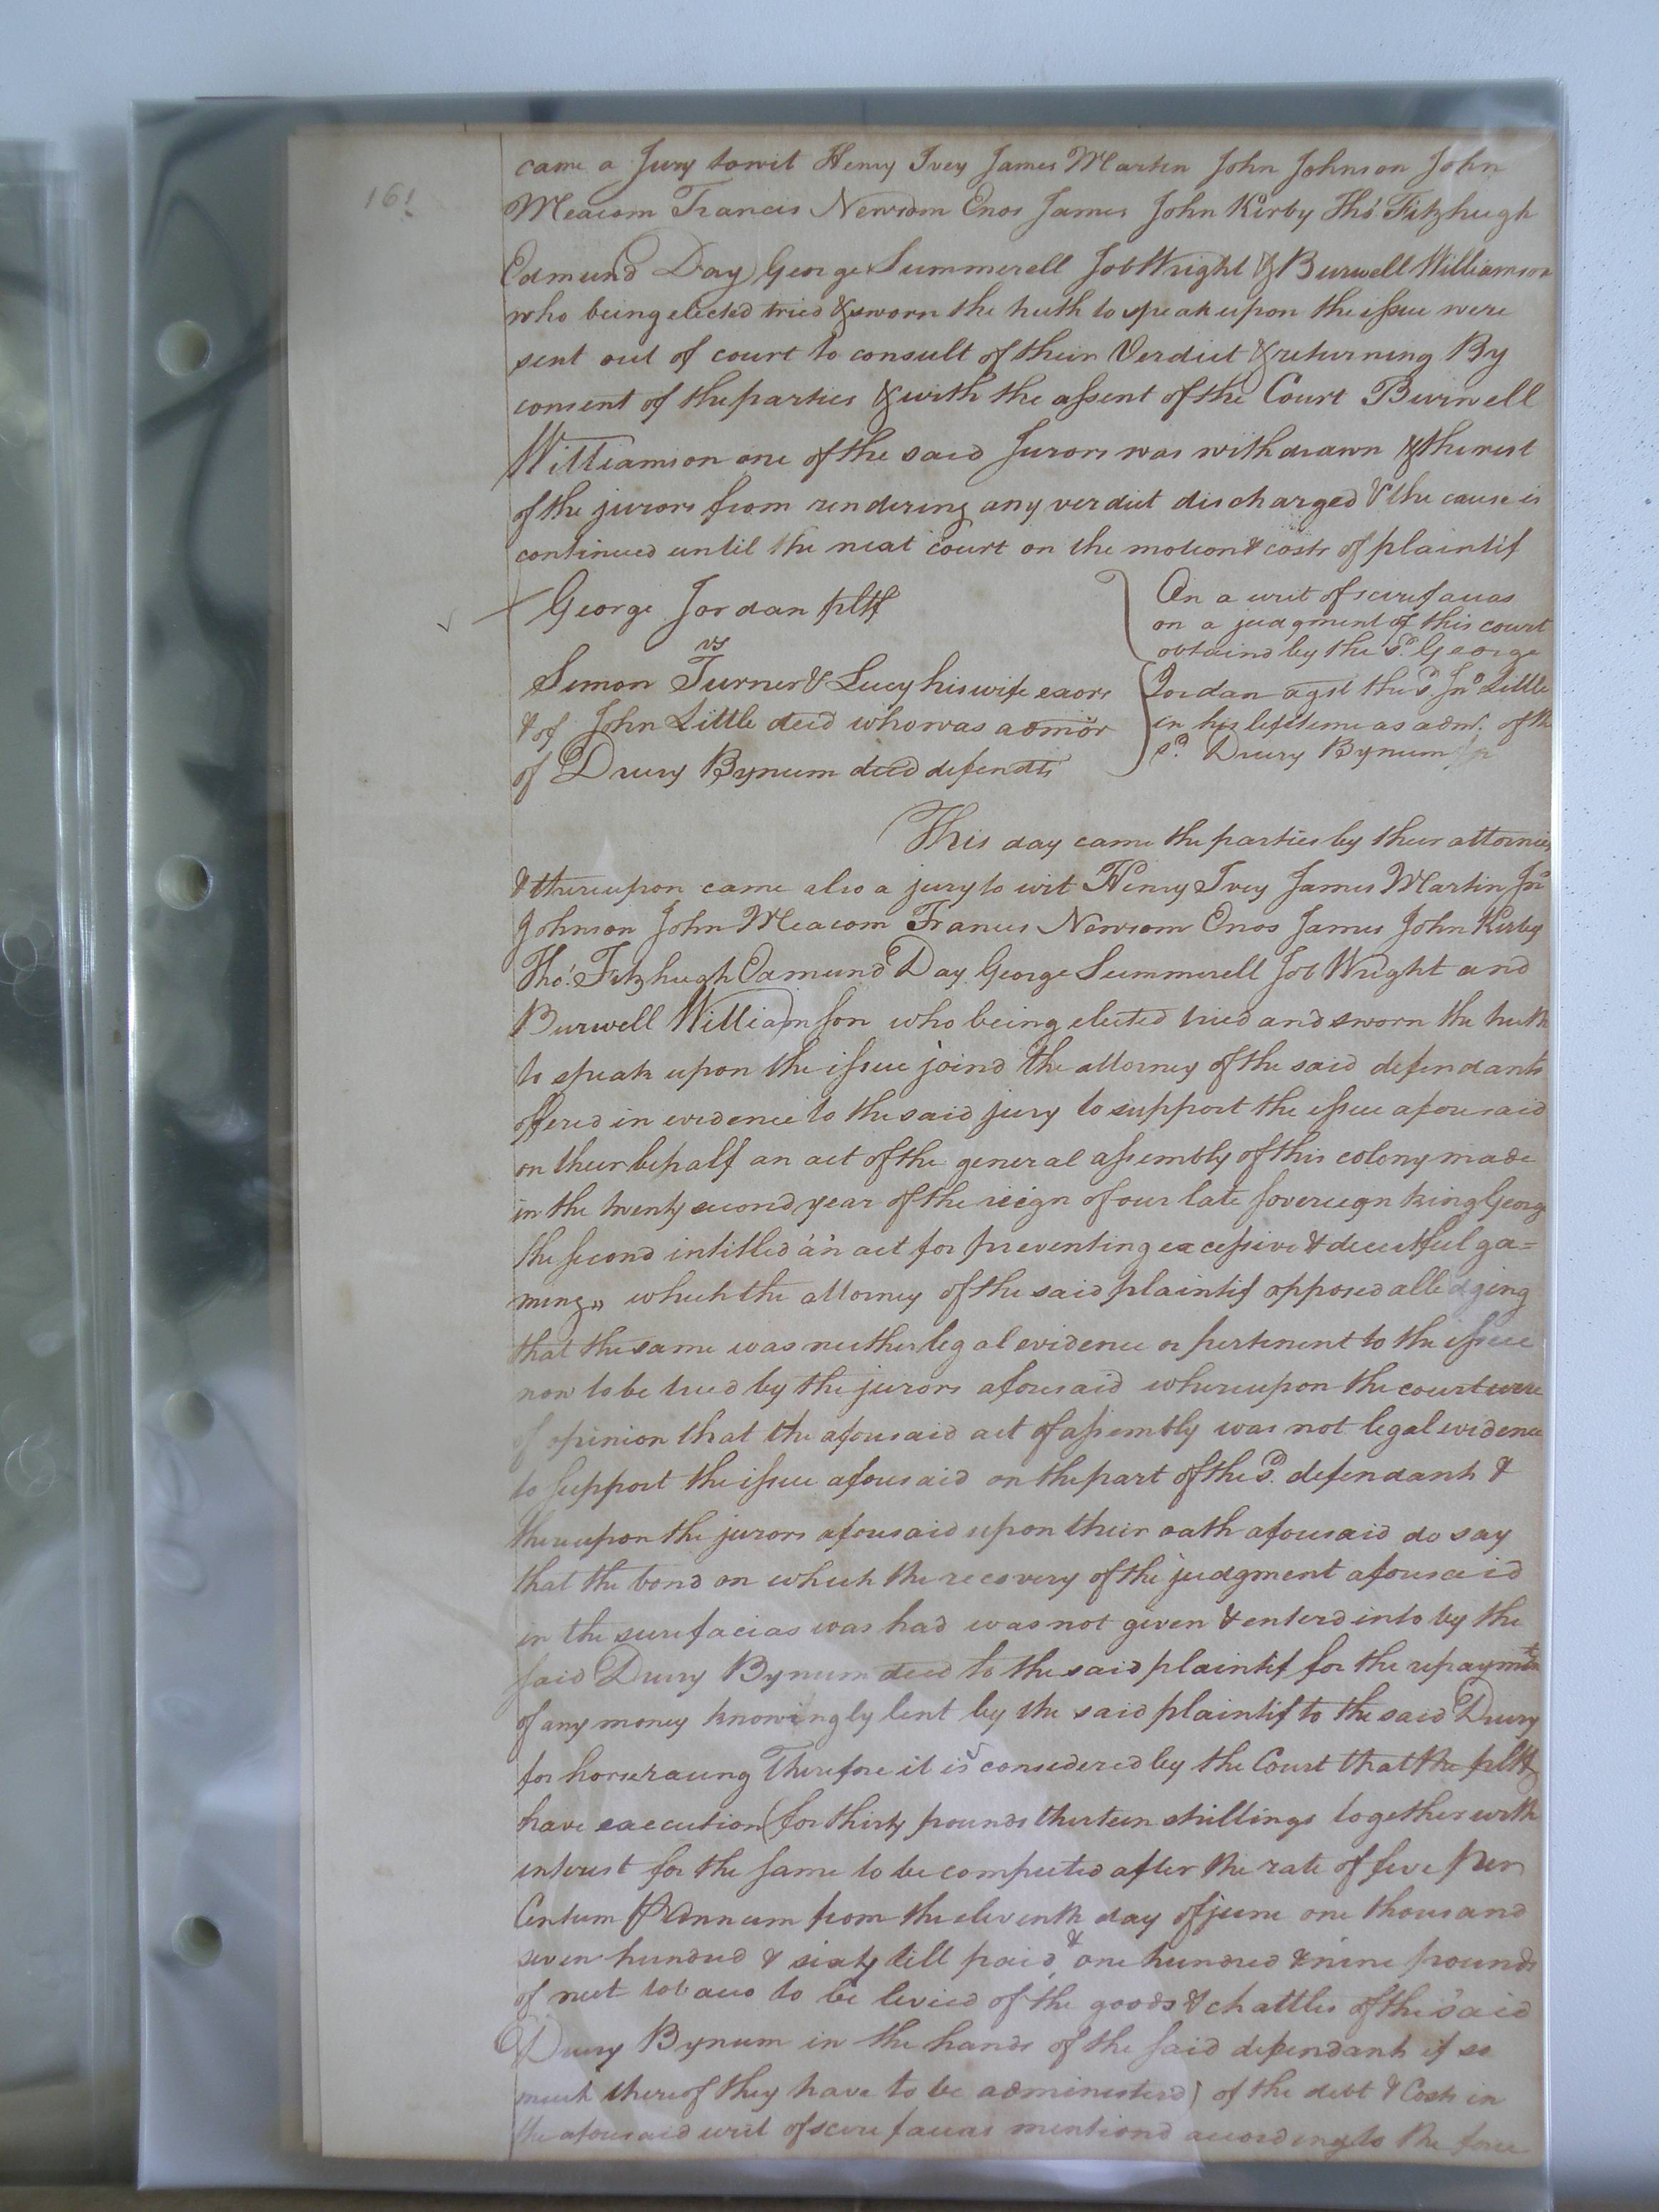 161
came a Jury towit Henry Ivey James Martin John Johnson John
Meacom Francis Newsom Enos James John Kirby Tho.s Fitzhugh
Edmund Day George Summerell Job Wright & Burwell Williamson
who being elected tried & sworn the truth to speak upon the issue were
sent out of court to consult of their Verdict & returning By
consent of the parties & with the assent of the Court Burwell
Williamson one of the said Jurors was withdrawn & the rest
of the jurors from rendering any verdict discharged & the cause is
continued until the next court on the motion & costs of plaintif
George Jordan pltf
vs
Simon Turner & Lucy his wife exors
& of John Little decd who was admor
of Drury Bynum decd defendts
On a writ of scirefacias
on a judgment of this court
obtaind by the sd. George
Jordan agst the sd. Jno Little
in his lifetime as admr. of the
sd. Drury Bynum
This day came the parties by their attornies
& thereupon came also a jury to wit Henry Ivey James Martin Jno
Johnson John Meacom Francis Newsom Enos James John Kirby
Tho.s Fitzhugh Edmund Day George Summerell Job Wright and
Burwell Williamson who being elected tried and sworn the truth
to speak upon the issue joind the attorney of the said defendants
offered in evidence to the said jury to support the issue aforesaid
on their behalf an act of the general assembly of this colony made
in the twenty second year of the reign of our late sovereign king George
the second intitled an act for preventing excessive & deceitful ga=
ming,, which the attorney of the said plaintif opposed alledging
that the same was neither legal evidence or pertinent to the issue
now to be tried by the jurors aforesaid whereupon the court were
of opinion that the aforesaid act of assembly was not legal evidence
to support the issue aforesaid on the part of the sd. defendants &
thereupon the jurors aforesaid upon their oath aforesaid do say
that the bond on which the recovery of the judgment aforesaid
in the scirefacias was had was not given & enterd into by the
said Drury Bynum decd to the said plaintif for the repaymt
of any money knowingly lent by the said plaintif to the said Drury
for horseracing Therefore it is considered by the Court that the pltf
have execution (for thirty pounds thirteen shillings together with
interest for the same to be computed after the rate of five per
Centum P Annum from the eleventh day of june one thousand
seven hundred & sixty till paid & one hundred & nine pounds
of nett tobacco to be levied of the goods & chattles of the said
Drury Bynum in the hands of the said defendants if so
much thereof they have to be administerd) of the debt & Costs in
the aforesaid writ of scire facias mentiond according to the force